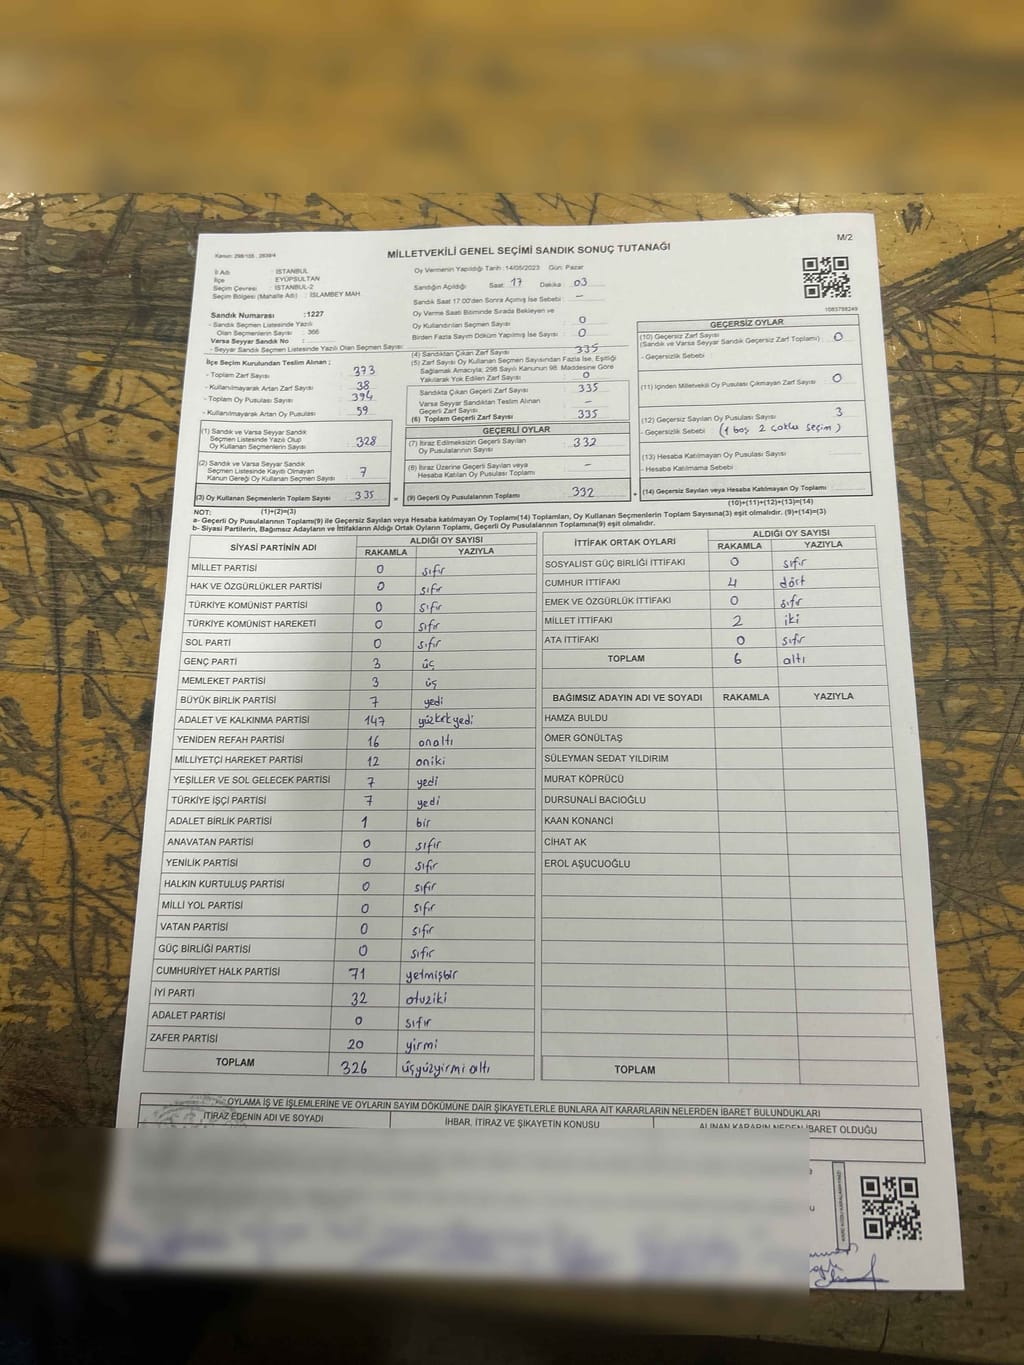 M/2
Kanun: 298/105 , 2839/4
MİLLETVEKİLİ GENEL SEÇİMİ SANDIK SONUÇ TUTANAĞI
İl Adı : İSTANBUL
İlçe : EYÜPSULTAN
Seçim Çevresi : İSTANBUL-2
Seçim Bölgesi (Mahalle Adı) : İSLAMBEY MAH
Oy Vermenin Yapıldığı Tarih :14/05/2023 Gün: Pazar
Sandığın Açıldığı Saat: 17 Dakika 03
Sandık Saat 17.00'den Sonra Açılmış İse Sebebi : -
Oy Verme Saati Bitiminde Sırada Bekleyen ve
Oy Kullandırılan Seçmen Sayısı : 0
Birden Fazla Sayım Döküm Yapılmış İse Sayısı : 0
1083798249
Sandık Numarası :1227
- Sandık Seçmen Listesinde Yazılı
Olan Seçmenlerin Sayısı : 366
Varsa Seyyar Sandık No :
- Seyyar Sandık Seçmen Listesinde Yazılı Olan Seçmen Sayısı:
İlçe Seçim Kurulundan Teslim Alınan ;
- Toplam Zarf Sayısı : 373
- Kullanılmayarak Artan Zarf Sayısı : 38
- Toplam Oy Pusulası Sayısı : 394
- Kullanılmayarak Artan Oy Pusulası : 59
(1) Sandık ve Varsa Seyyar Sandık
Seçmen Listesinde Yazılı Olup
Oy Kullanan Seçmenlerin Sayısı : 328
(2) Sandık ve Varsa Seyyar Sandık
Seçmen Listesinde Kayıtlı Olmayan
Kanun Gereği Oy Kullanan Seçmen Sayısı : 7
(3) Oy Kullanan Seçmenlerin Toplam Sayısı : 335
(1)+(2)=(3)
(4) Sandıktan Çıkan Zarf Sayısı : 335
(5) Zarf Sayısı Oy Kullanan Seçmen Sayısından Fazla İse, Eşitliği
Sağlamak Amacıyla; 298 Sayılı Kanunun 98. Maddesine Göre
Yakılarak Yok Edilen Zarf Sayısı : 0
Sandıkta Çıkan Geçerli Zarf Sayısı : 335
Varsa Seyyar Sandıktan Teslim Alınan
Geçerli Zarf Sayısı : -
(6) Toplam Geçerli Zarf Sayısı : 335
GEÇERLİ OYLAR
(7) İtiraz Edilmeksizin Geçerli Sayılan
Oy Pusulalarının Sayısı : 332
(8) İtiraz Üzerine Geçerli Sayılan veya
Hesaba Katılan Oy Pusulası Toplamı : -
= (9) Geçerli Oy Pusulalarının Toplamı : 332
GEÇERSİZ OYLAR
(10) Geçersiz Zarf Sayısı
(Sandık ve Varsa Seyyar Sandık Geçersiz Zarf Toplamı) : 0
- Geçersizlik Sebebi :
(11) İçinden Milletvekili Oy Pusulası Çıkmayan Zarf Sayısı : 0
(12) Geçersiz Sayılan Oy Pusulası Sayısı : 3
- Geçersizlik Sebebi : (1 boş 2 çoklu seçim)
(13) Hesaba Katılmayan Oy Pusulası Sayısı :
- Hesaba Katılmama Sebebi :
+ (14) Geçersiz Sayılan veya Hesaba Katılmayan Oy Toplamı :
(10)+(11)+(12)+(13)=(14)
NOT:
a- Geçerli Oy Pusulalarının Toplamı(9) ile Geçersiz Sayılan veya Hesaba katılmayan Oy Toplamı(14) Toplamları, Oy Kullanan Seçmenlerin Toplam Sayısına(3) eşit olmalıdır. (9)+(14)=(3)
b- Siyasi Partilerin, Bağımsız Adayların ve İttifakların Aldığı Ortak Oyların Toplamı, Geçerli Oy Pusulalarının Toplamına(9) eşit olmalıdır.
SİYASİ PARTİNİN ADI ALDIĞI OY SAYISI
RAKAMLA YAZIYLA
MİLLET PARTİSİ 0 sıfır
HAK VE ÖZGÜRLÜKLER PARTİSİ 0 sıfır
TÜRKİYE KOMÜNİST PARTİSİ 0 sıfır
TÜRKİYE KOMÜNİST HAREKETİ 0 sıfır
SOL PARTİ 0 sıfır
GENÇ PARTİ 3 üç
MEMLEKET PARTİSİ 3 üş
BÜYÜK BİRLİK PARTİSİ 7 yedi
ADALET VE KALKINMA PARTİSİ 147 yüzkırkyedi
YENİDEN REFAH PARTİSİ 16 onaltı
MİLLİYETÇİ HAREKET PARTİSİ 12 oniki
YEŞİLLER VE SOL GELECEK PARTİSİ 7 yedi
TÜRKİYE İŞÇİ PARTİSİ 7 yedi
ADALET BİRLİK PARTİSİ 1 bir
ANAVATAN PARTİSİ 0 sıfır
YENİLİK PARTİSİ 0 sıfır
HALKIN KURTULUŞ PARTİSİ 0 sıfır
MİLLİ YOL PARTİSİ 0 sıfır
VATAN PARTİSİ 0 sıfır
GÜÇ BİRLİĞİ PARTİSİ 0 sıfır
CUMHURİYET HALK PARTİSİ 71 yetmişbir
İYİ PARTİ 32 otuziki
ADALET PARTİSİ 0 sıfır
ZAFER PARTİSİ 20 yirmi
TOPLAM 326 üçyüzyirmi altı
İTTİFAK ORTAK OYLARI ALDIĞI OY SAYISI
RAKAMLA YAZIYLA
SOSYALİST GÜÇ BİRLİĞİ İTTİFAKI 0 sıfır
CUMHUR İTTİFAKI 4 dört
EMEK VE ÖZGÜRLÜK İTTİFAKI 0 sıfır
MİLLET İTTİFAKI 2 iki
ATA İTTİFAKI 0 sıfır
TOPLAM 6 altı
BAĞIMSIZ ADAYIN ADI VE SOYADI RAKAMLA YAZIYLA
HAMZA BULDU
ÖMER GÖNÜLTAŞ
SÜLEYMAN SEDAT YILDIRIM
MURAT KÖPRÜCÜ
DURSUNALİ BACIOĞLU
KAAN KONANCİ
CİHAT AK
EROL AŞUCUOĞLU
TOPLAM
OYLAMA İŞ VE İŞLEMLERİNE VE OYLARIN SAYIM DÖKÜMÜNE DAİR ŞİKAYETLERLE BUNLARA AİT KARARLARIN NELERDEN İBARET BULUNDUKLARI
İTİRAZ EDENİN ADI VE SOYADI İHBAR, İTİRAZ VE ŞİKAYETİN KONUSU ALINAN KARARIN NEDEN İBARET OLDUĞU